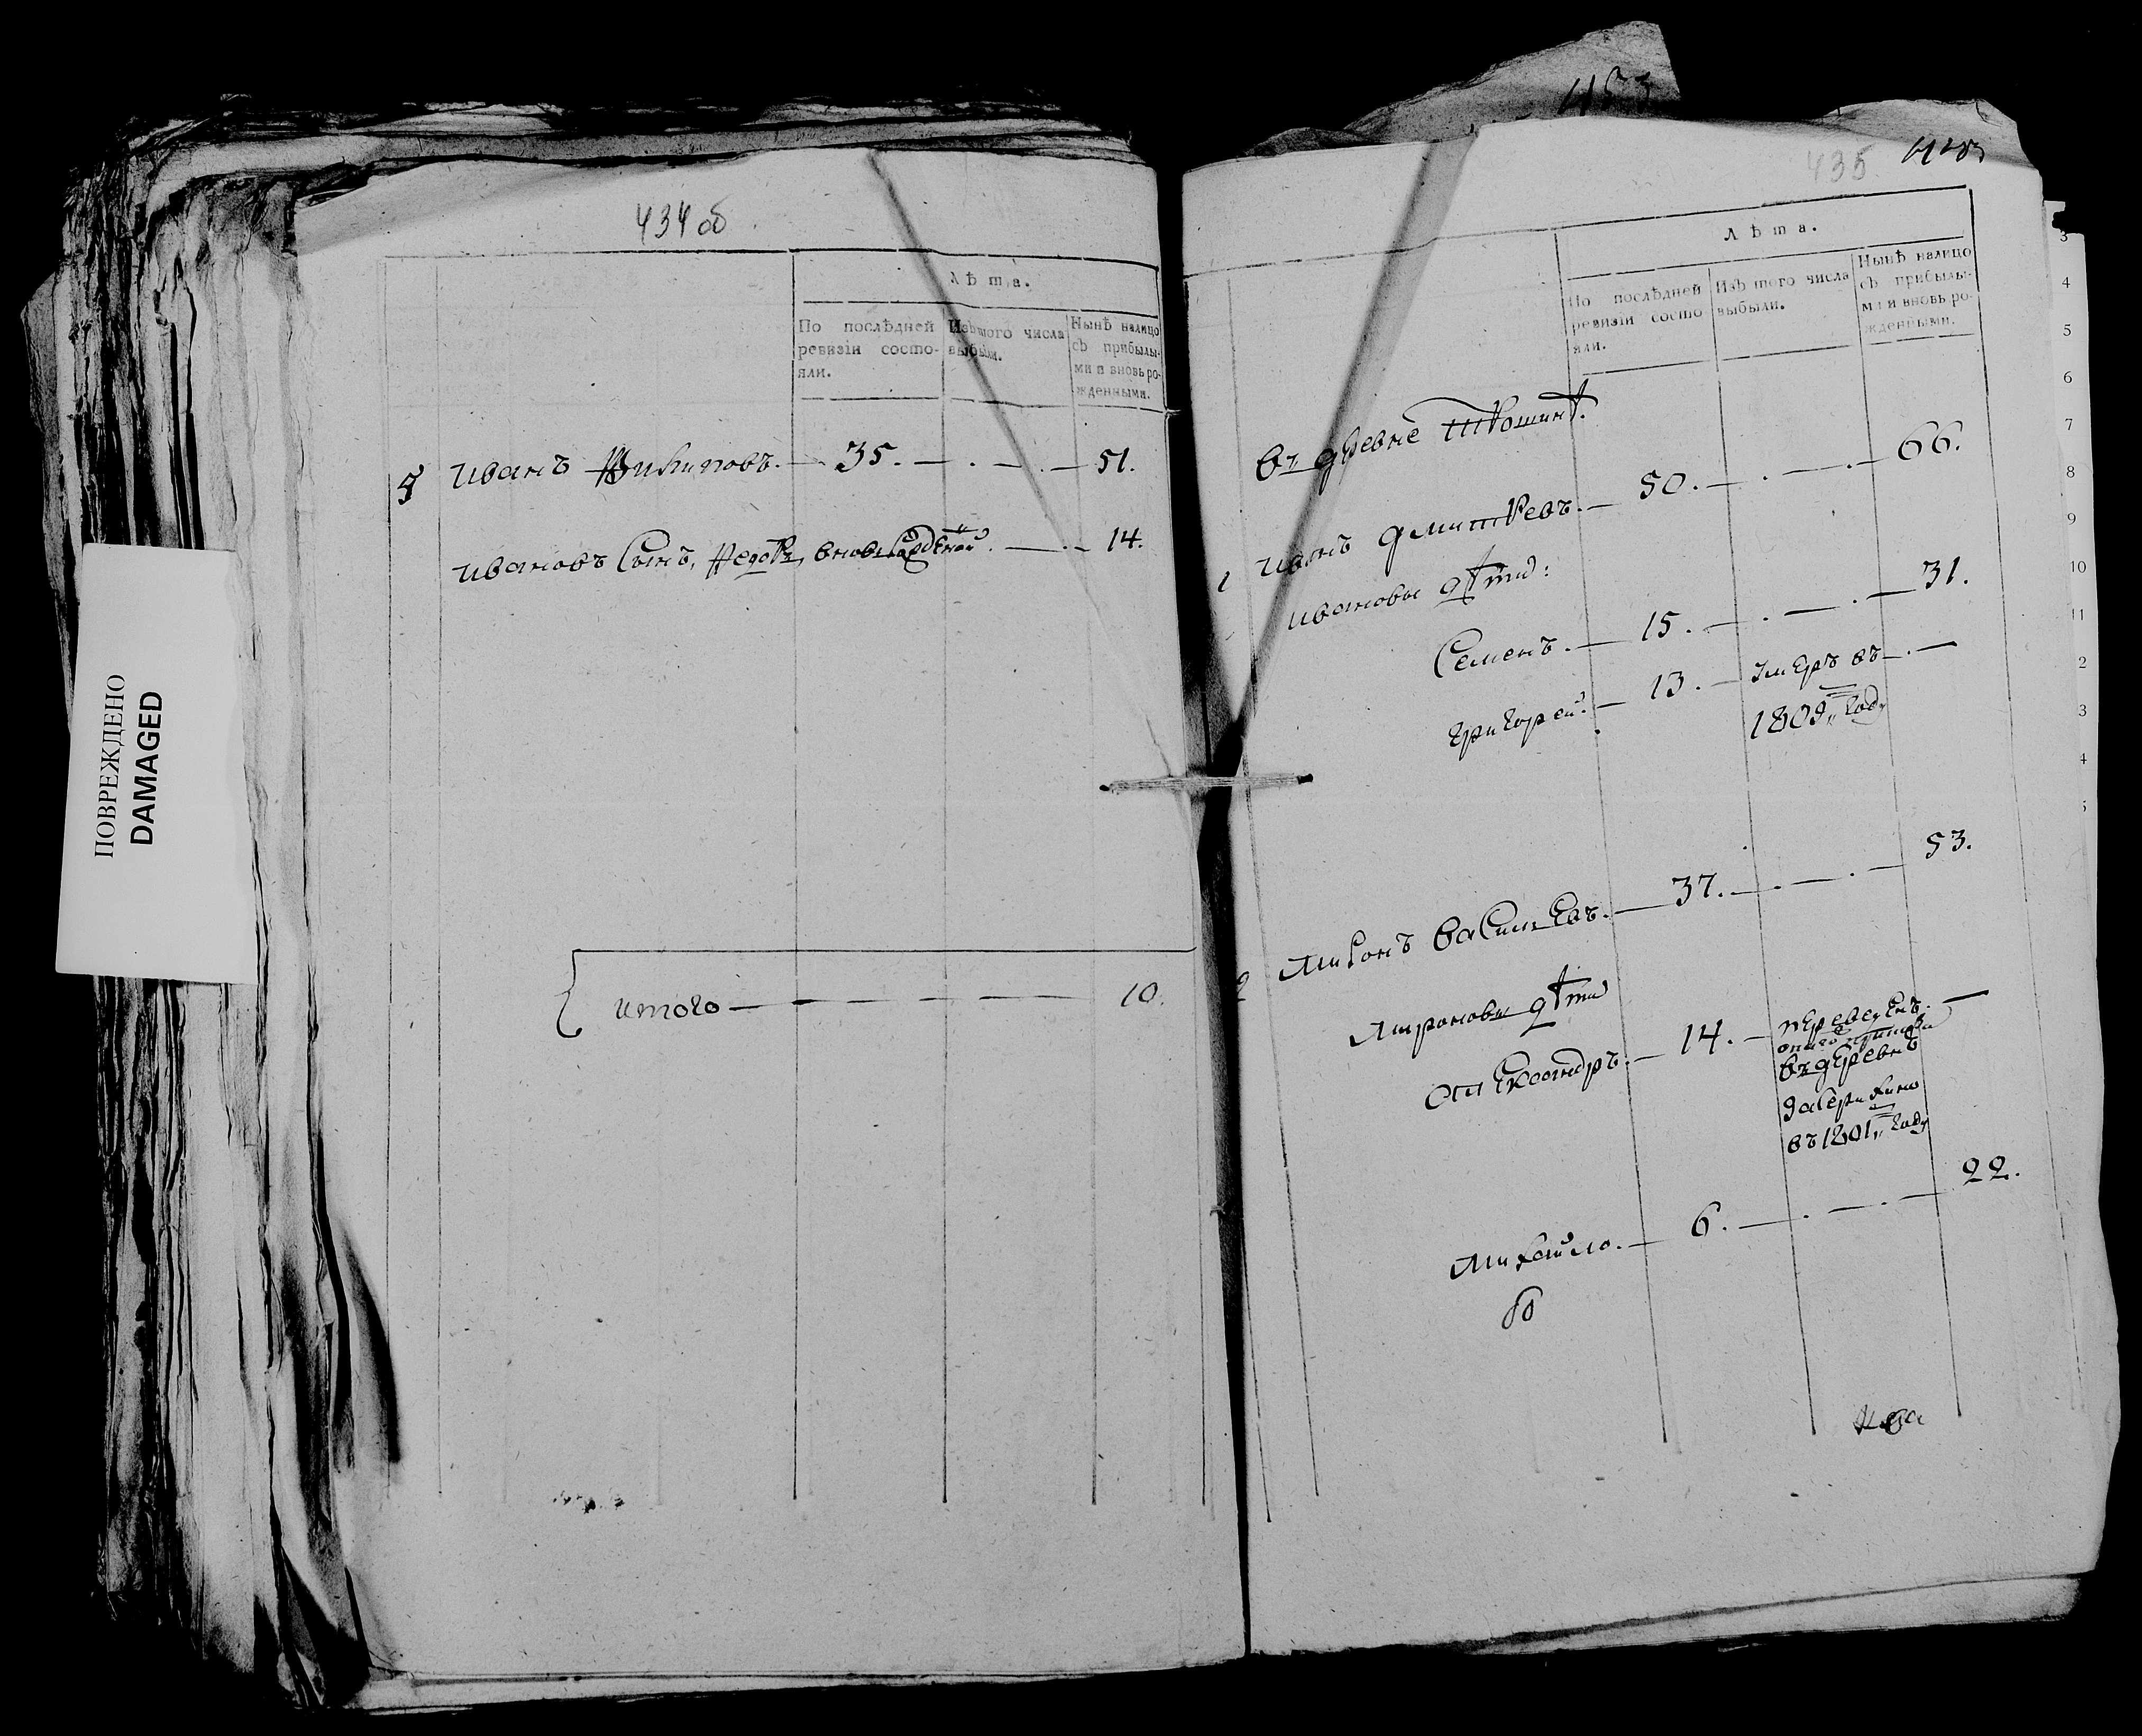 434 об
Лѣта.
По послѣдней ревизіи состояли.
Изъ того числа выбыли.
Нынѣ налицо съ прибылыми и вновь рожденными.
5 Иванъ Филиповъ. 35. 51.
Ивановъ сынъ, Федоръ, вновьрожденной. 14.
итого 10.
ПОВРЕЖДЕНО
DAMAGED
453
435
Лѣта.
По послѣдней ревизіи состояли.
Изъ того числа выбыли.
Нынѣ налицо съ прибылыми и вновь рожденными.
Въ деревне
1 Иванъ Дмитревъ. 50. 66.
Ивановы дѣти:
Семенъ. 15. 31.
Григорей. 13. умеръ въ
1809 году
2 Миронъ Васильевъ. 37. 53.
Мироновы дѣти
Александръ. 14. переведенъ
въ деревню
въ 1801 году
Михайло. 6. 22.
3
4
5
6
7
8
9
10
11
2
3
4